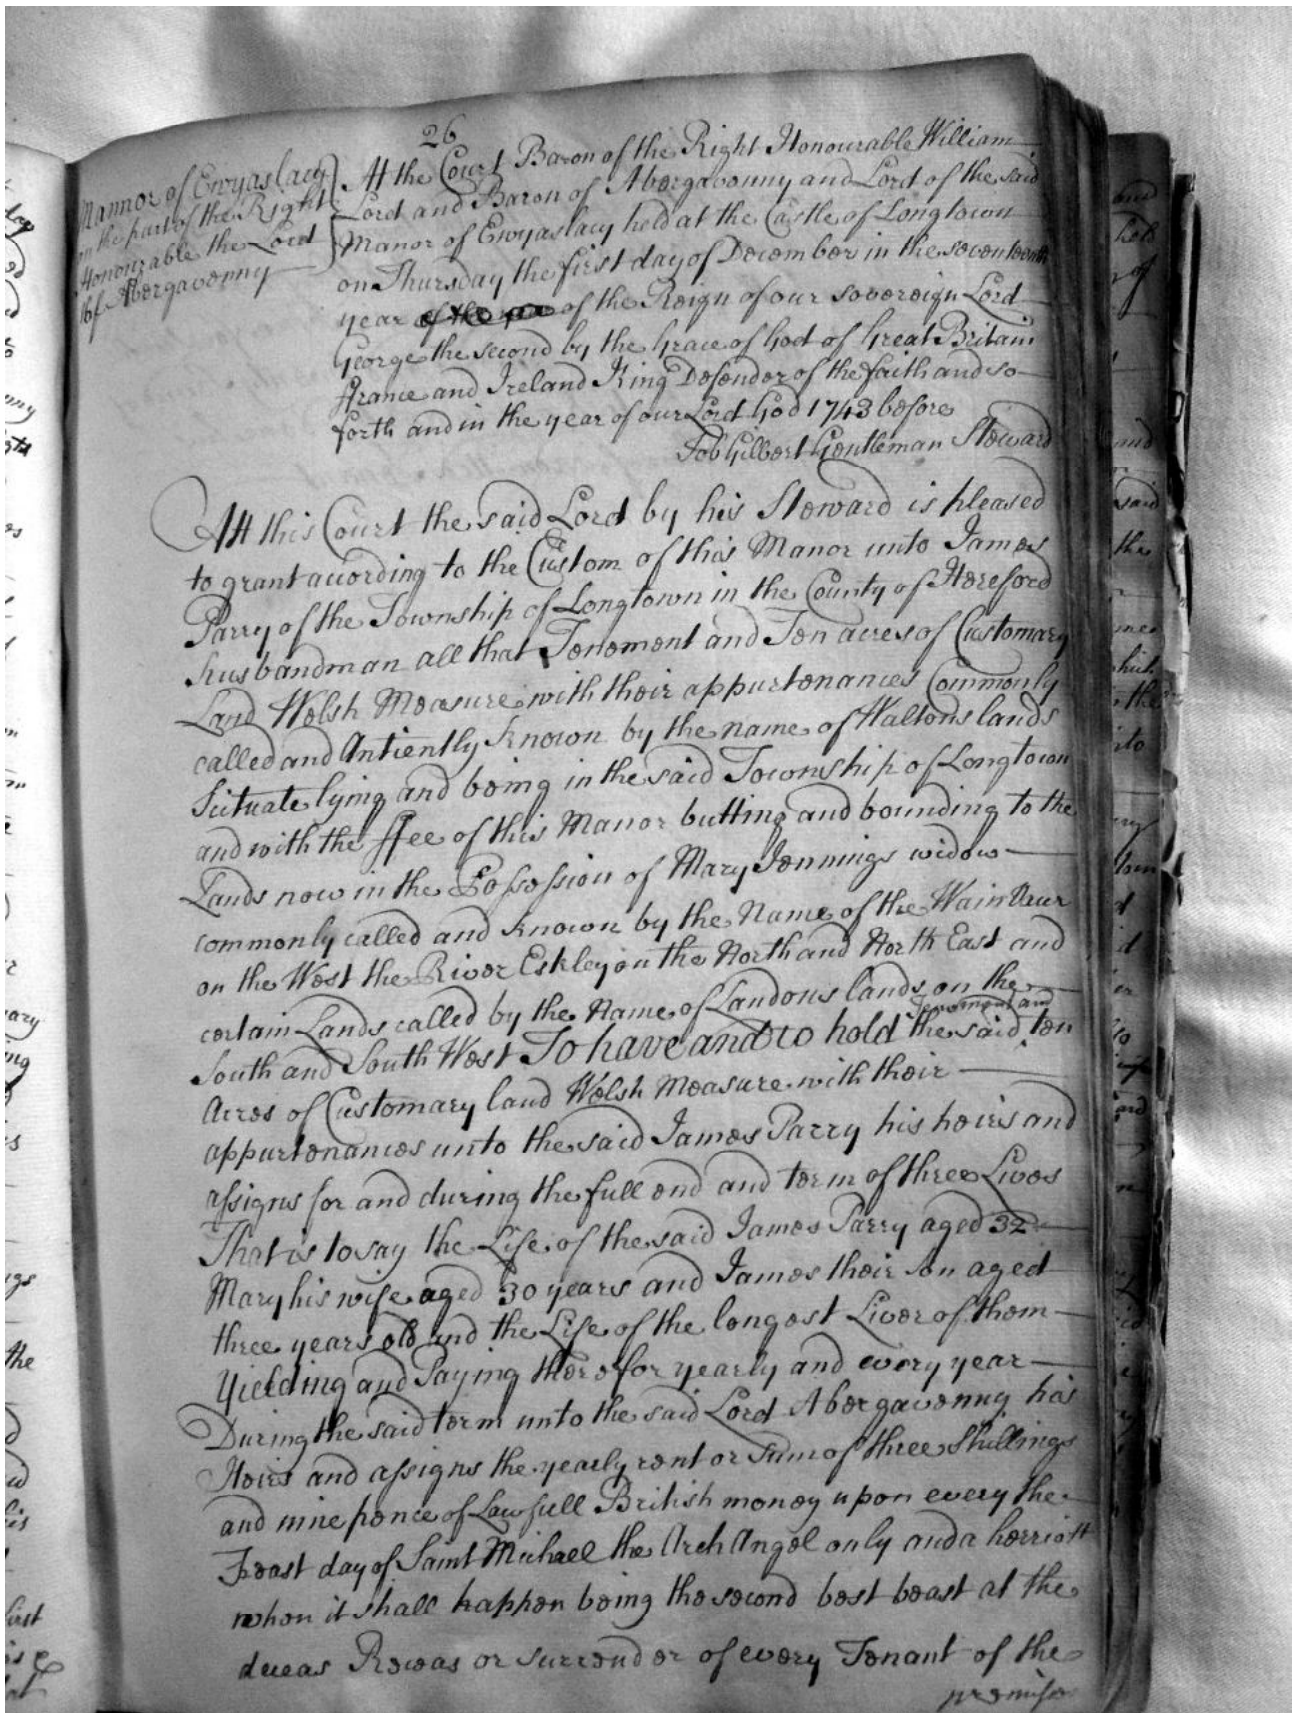 26
Mannor of Ewyaslacy
on the part of the Right
Honourable the Lord
of Abergavenny
At the Court Baron of the Right Honourable William
Lord and Baron of Abergavenny and Lord of the said
Manor of Ewyaslacy held at the Castle of Longtown
on Thursday the first day of December in the seventeenth
year of the Reign of our Sovereign Lord
George the second by the Grace of God of Great Britain
ffrance and Ireland King Defender of the faith and so
forth and in the year of our Lord God 1743 before
Job Gilbert Gentleman Steward
Att this Court the said Lord by his Steward is pleased
to grant according to the Custom of this Manor unto James
Parry of the Township of Longtown in the County of Hereford
husbandman all that Tenement and Ten acres of Customary
Land Welsh Measure with their appurtenances Commonly
called and Antiently known by the name of Waltons lands
Scituate lying and being in the said Township of Longtown
and with the ffee of this Manor butting and bounding to the
Lands now in the Possession of Mary Jennings widow
commonly called and known by the Name of the Wain
on the West the River Eskley on the North and North East and
certain Lands called by the Name of Landons lands on the
South and South West To have and to hold the said Tenement and ten
Acres of Customary land Welsh Measure with their
appurtenances unto the said James Parry his heirs and
assigns for and during the full end and term of three Lives
That is to say the Life of the said James Parry aged 32
Mary his wife aged 30 years and James their son aged
three years old and the Life of the longest Liver of them
Yielding and Paying therefor yearly and every year
During the said term unto the said Lord Abergavenny his
Heirs and assigns the yearly rent or Sum of three Shillings
and nine pence of Lawfull British money upon every the
Feast day of Saint Michael the Arch Angel only and a herriott
when it shall happen being the second best beast at the
deceas Releas or surrender of every Tenant of the
premises